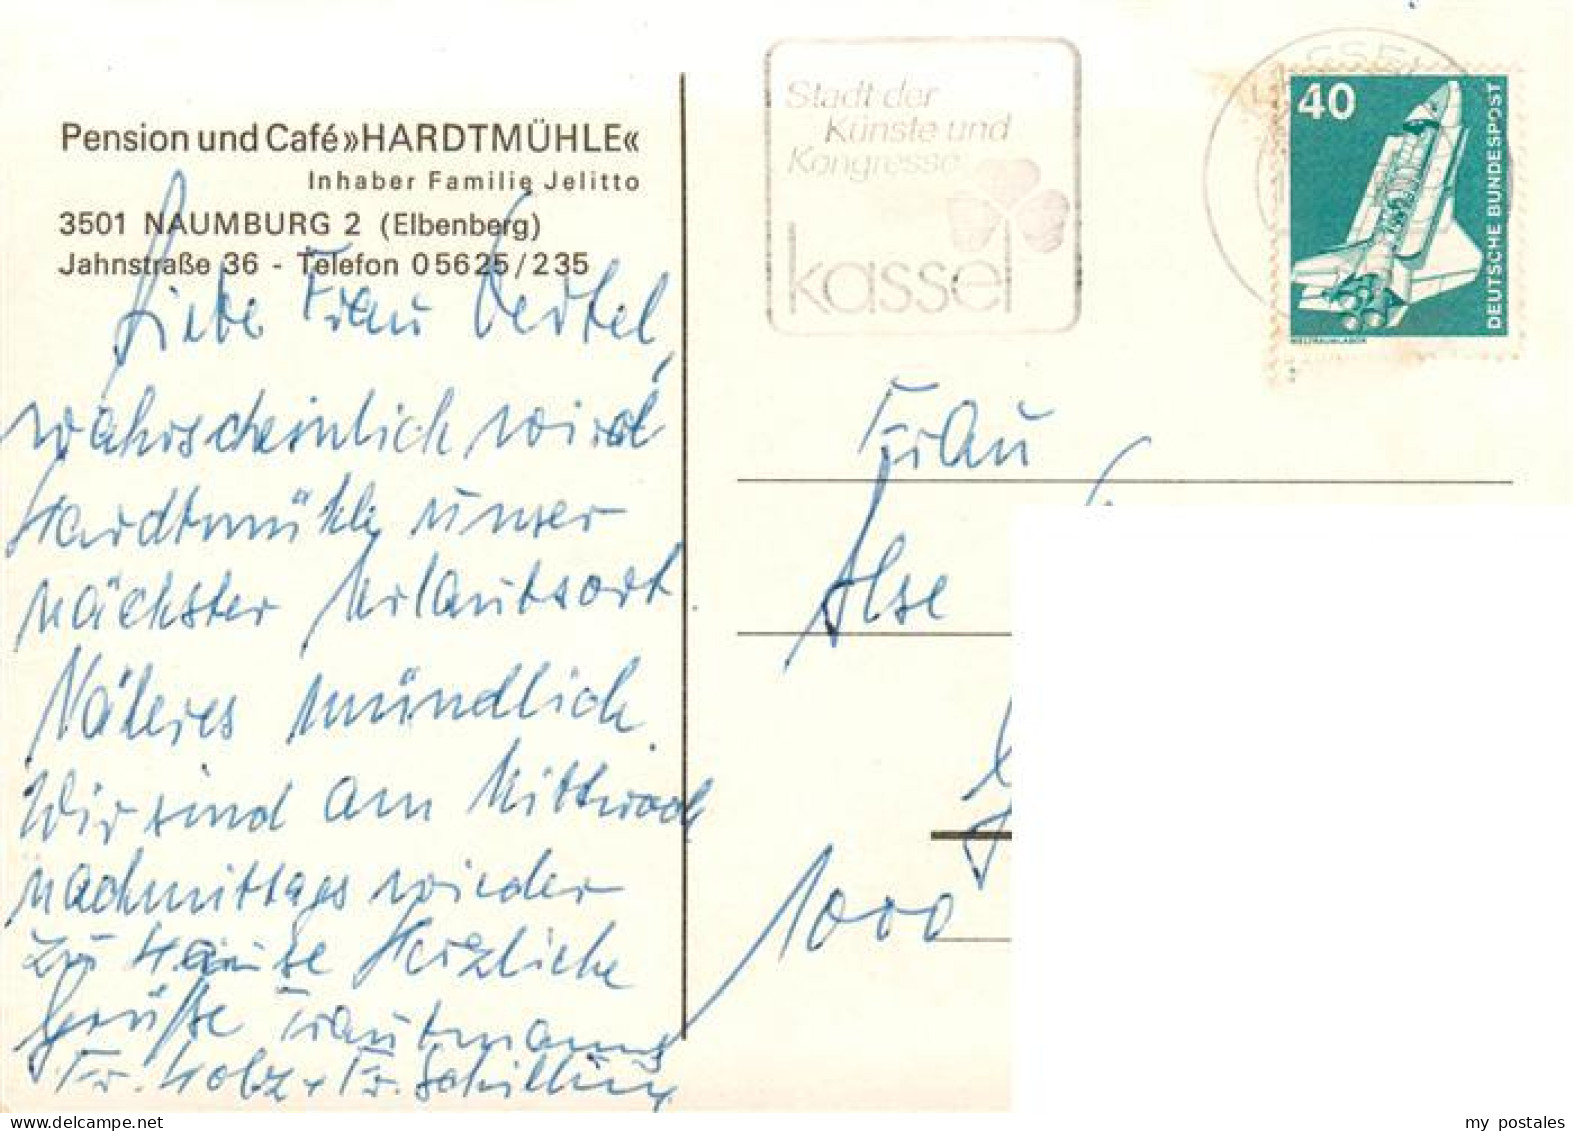 Pension und Café »HARDTMÜHLE«
Inhaber Familie Jelitto
3501 NAUMBURG 2 (Elbenberg)
Jahnstraße 36 - Telefon 05625/235
Liebe Frau Oertel,
wahrscheinlich wird
Hardtmühle unser
nächster Urlaubsort.
Näheres mündlich.
Wir sind am Mittwoch
nachmittags wieder
zu Hause Herzliche
Grüße Trautmanns
Fr. Holz + Fr. Schilling
Stadt der
Künste und
Kongresse
kassel
KASSEL
40
DEUTSCHE BUNDESPOST
WELTRAUMLABOR
Frau
Ilse
1000
my postales